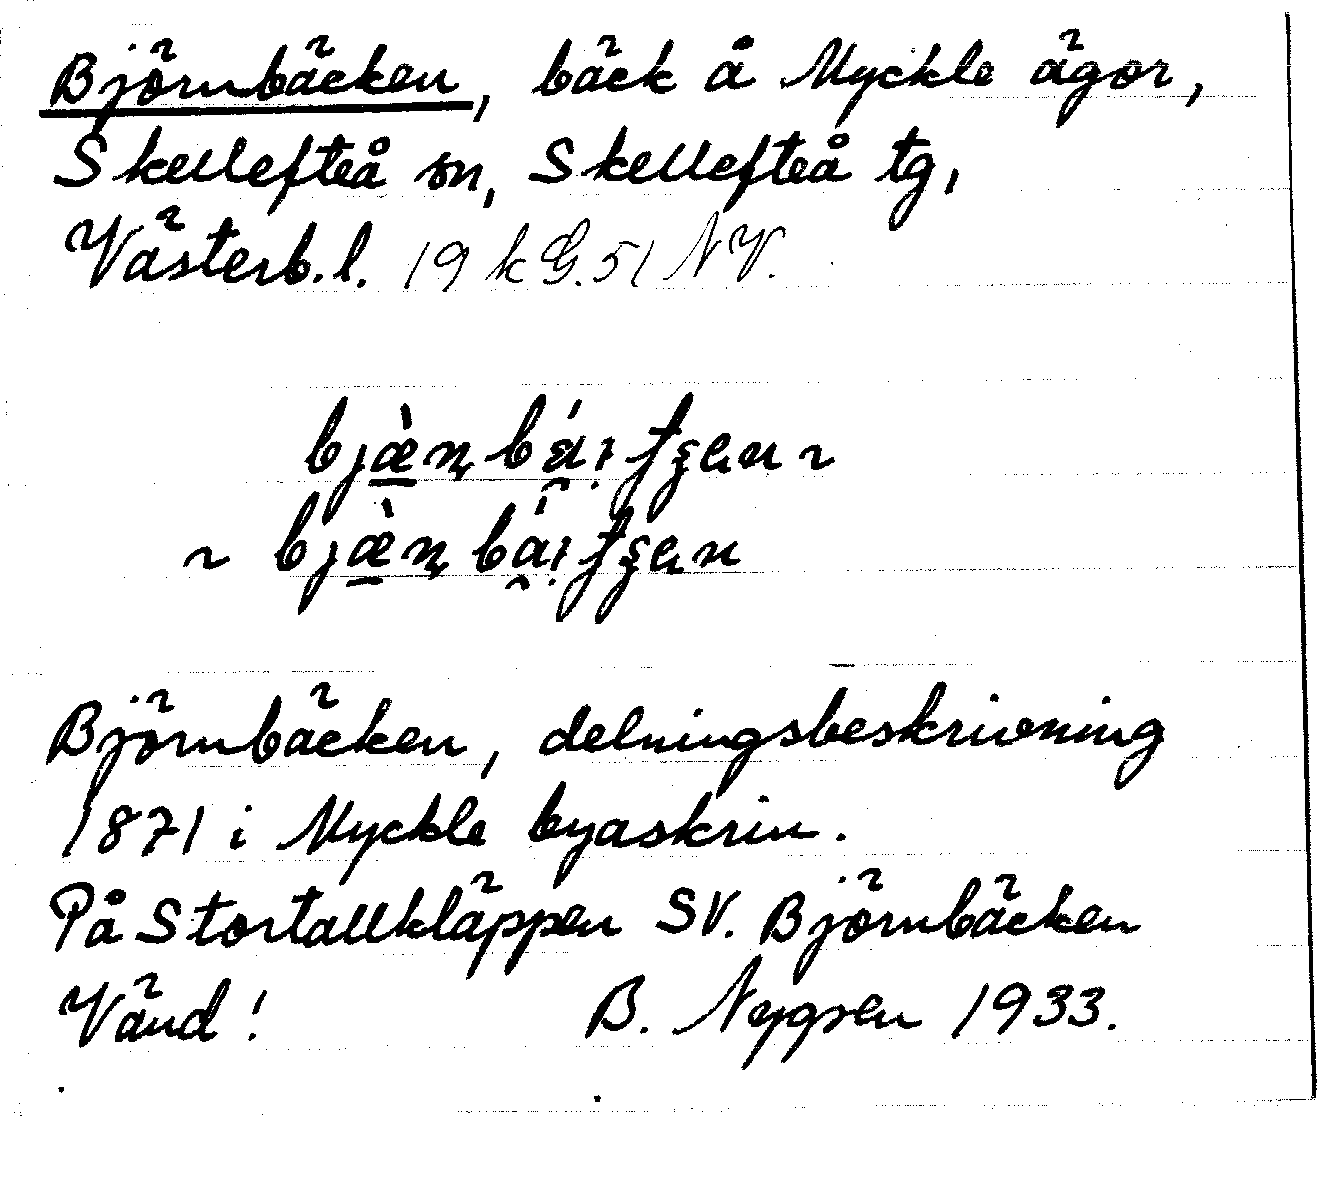 Björnbäcken, bäck å Myckle ägor,
Skellefteå sn, Skellefteå tg,
Västerb.l. 19 k G.51 NV.
Björnbäcken, delningsbeskrivning
1871 i Myckle byaskrin.
På Stortallkläppen SV. Björnbäcken
Vänd! B. 1933.